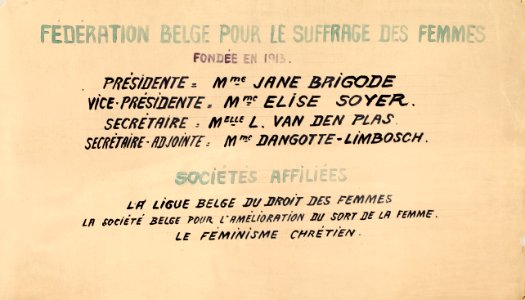 FEDERATION BELGE POUR LE SUFFRAGE DES FEMMES
FONDÉE EN 1913.
PRÉSIDENTE = Mme JANE BRIGODE
VICE-PRÉSIDENTE = Mme ELISE SOYER.
SECRÉTAIRE = Melle L. VAN DEN PLAS.
SECRÉTAIRE-ADJOINTE = Mme DANGOTTE-LIMBOSCH.
SOCIÉTÉS AFFILIÉES
LA LIGUE BELGE DU DROIT DES FEMMES
LA SOCIÉTÉ BELGE POUR L'AMÉLIORATION DU SORT DE LA FEMME.
LE FÉMINISME CHRÉTIEN.